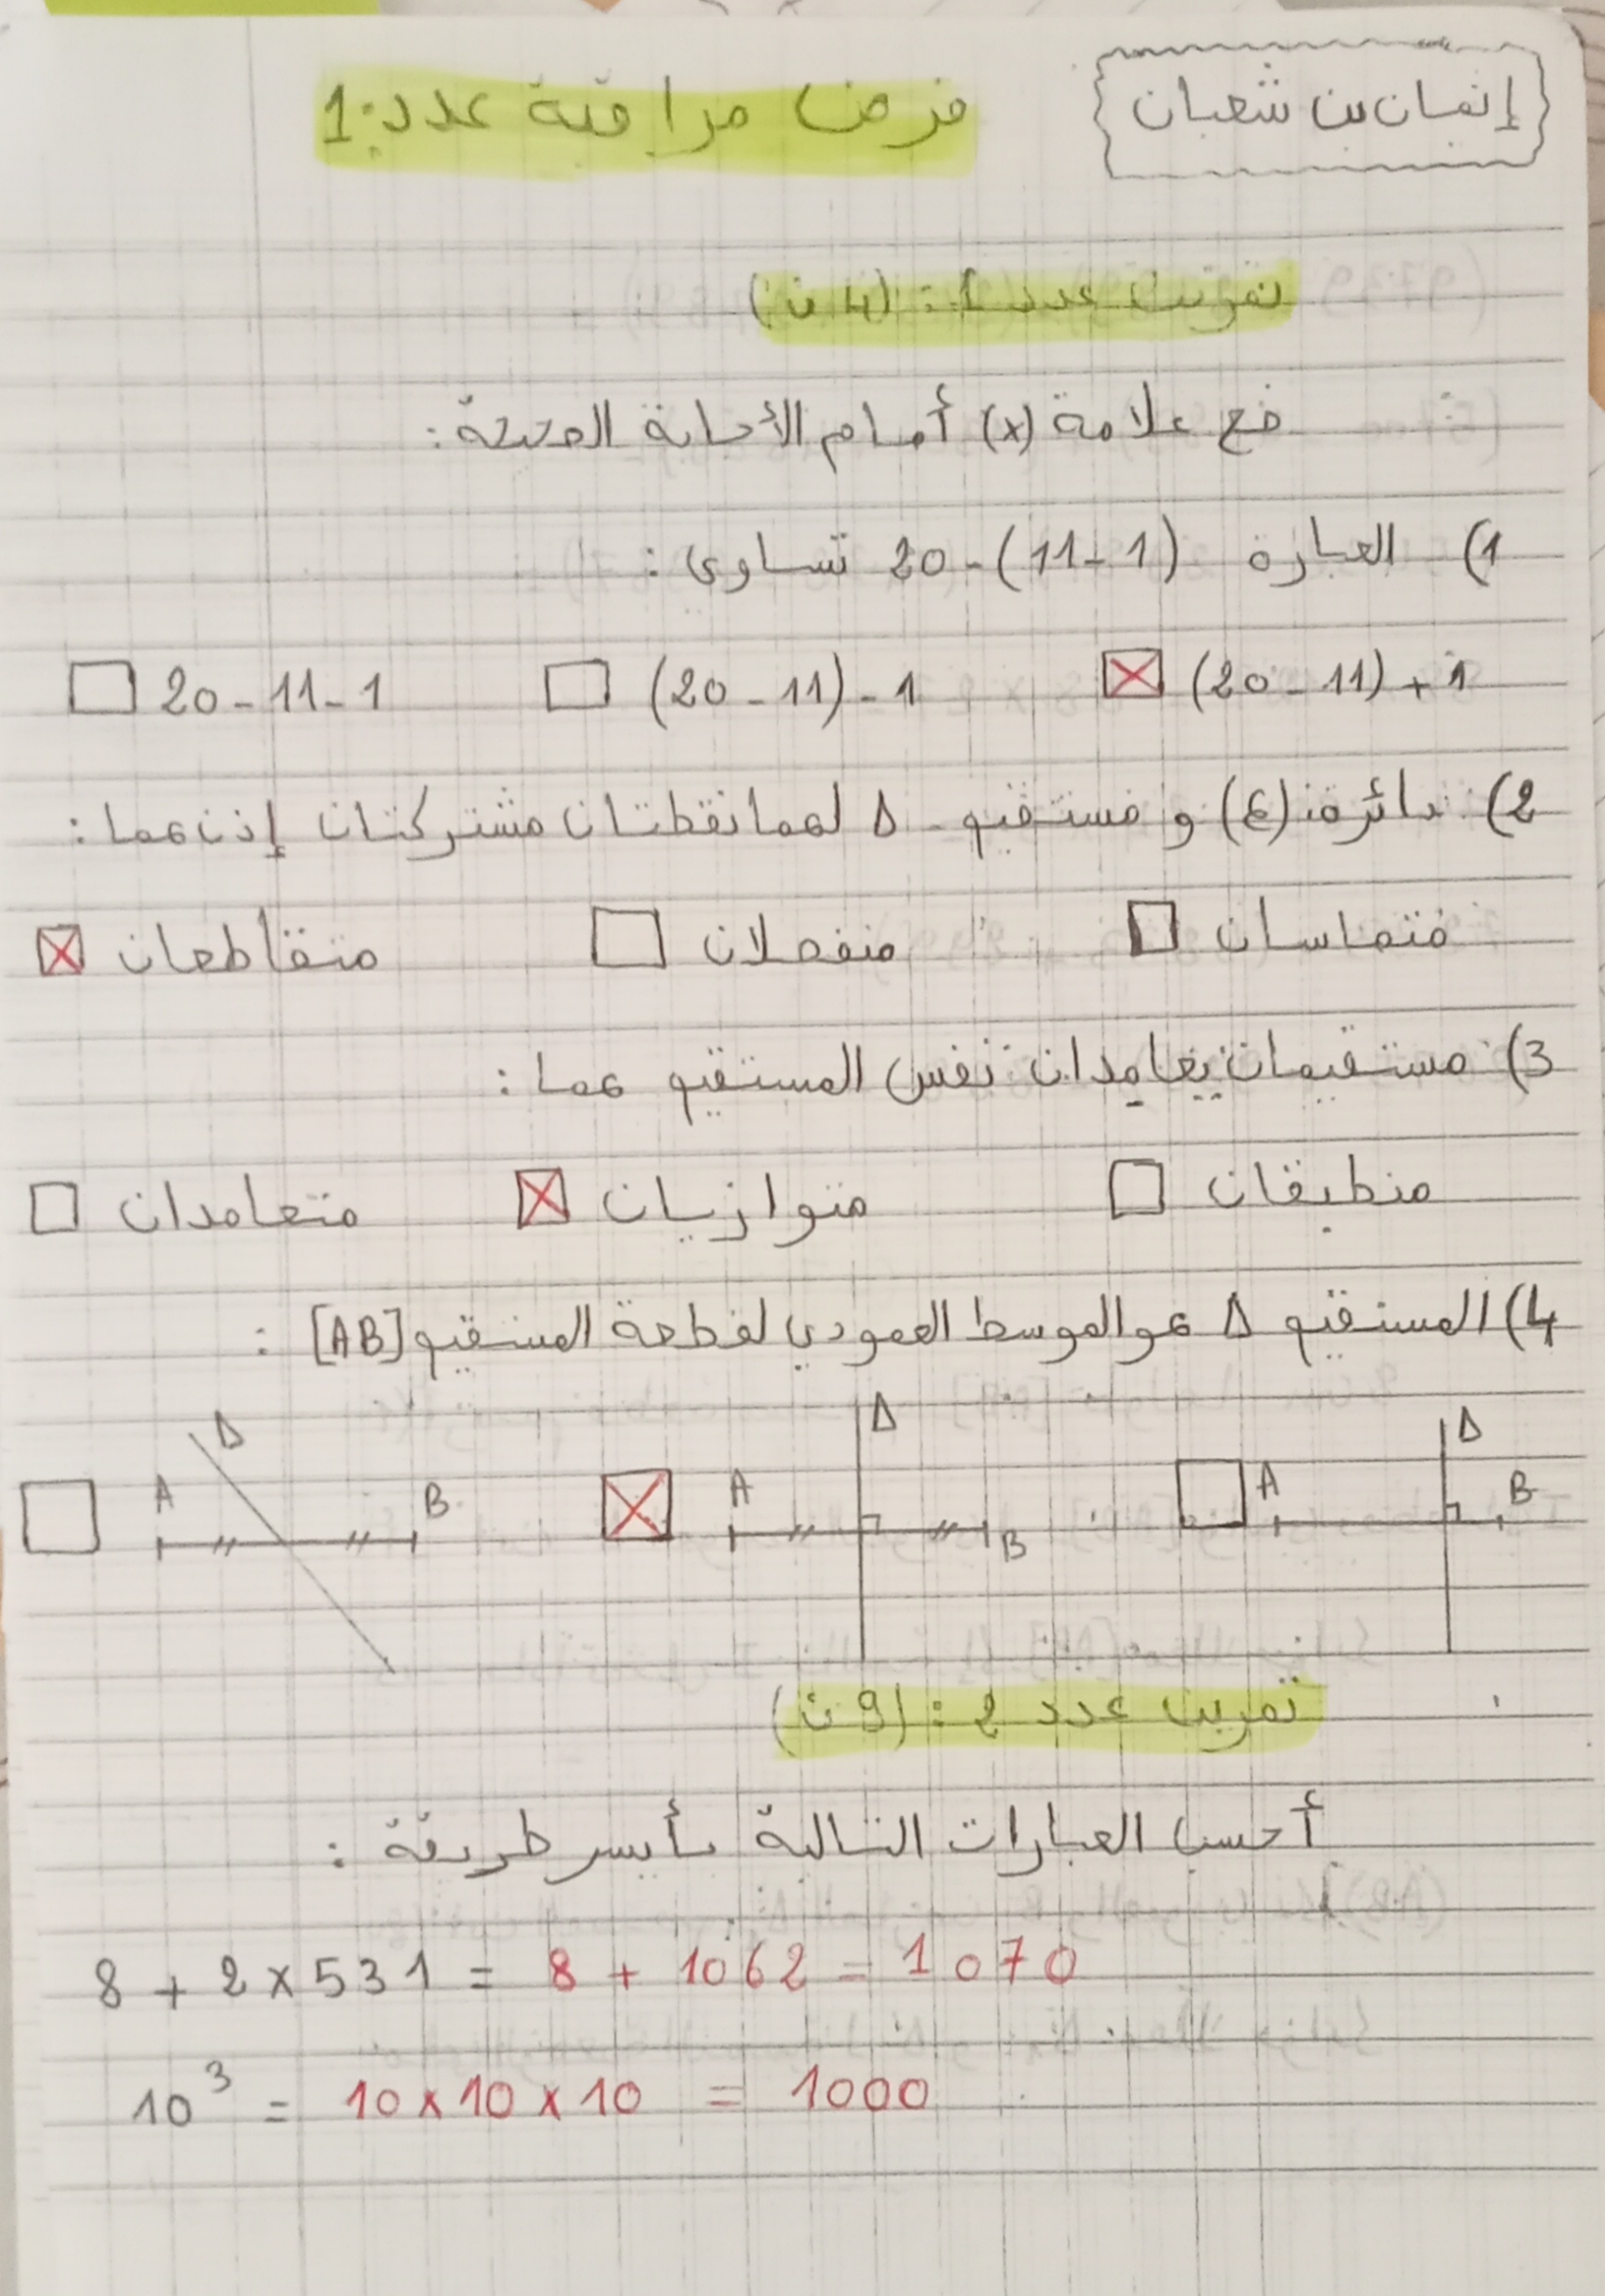 إيمان بن شعبان
فرض مراقبة عدد: 1
تمرين عدد 1: (4 ن)
ضع علامة (x) أمام الأجابة الصحيحة:
1) العبارة 20-(11-1) تساوي:
(20-11)+1 ☒ (20-11)-1 ☐ 20-11-1 ☐
2) دائرة (C) و مستقيم Δ لهما نقطتان مشتركتان إذن هما:
متماسان ☐ منفصلان ☐ متقاطعان ☒
3) مستقيمان يعامدان نفس المستقيم هما:
منطبقان ☐ متوازيان ☒ متعامدان ☐
4) المستقيم Δ هو الموسط العمودي لقطعة المستقيم [AB]:
Δ Δ Δ
A B A B A B
تمرين عدد 2: (9 ن)
أحسب العبارات التالية بأيسر طريقة:
8 + 2 x 531 = 8 + 1062 = 1070
10³ = 10 x 10 x 10 = 1000